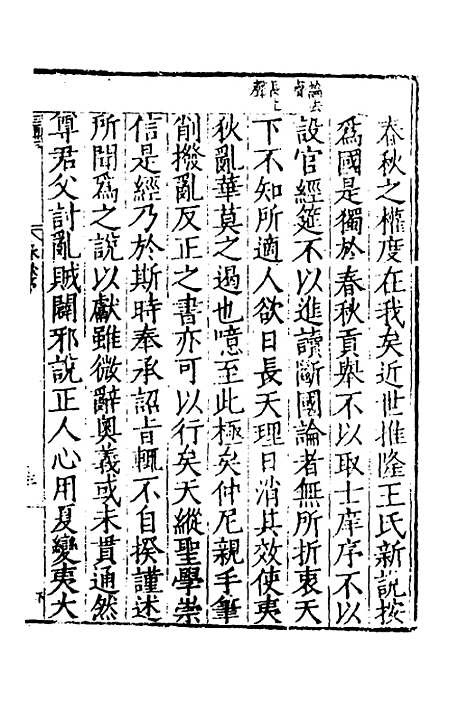 春秋之權度在我矣近世推隆王氏新說按
爲國是獨於春秋貢舉不以取士庠序不以
設官經筵不以進讀斷國論者無所折衷天
下不知所適人欲日長天理日消其效使夷
狄亂華莫之遏也噫至此極矣仲尼親手筆
削撥亂反正之書亦可以行矣天縱聖學崇
信是經乃於斯時奉承詔旨輒不自揆謹述
所聞爲之說以獻雖微辭奥義或未貫通然
尊君父討亂賊闢邪說正人心用夏變夷大